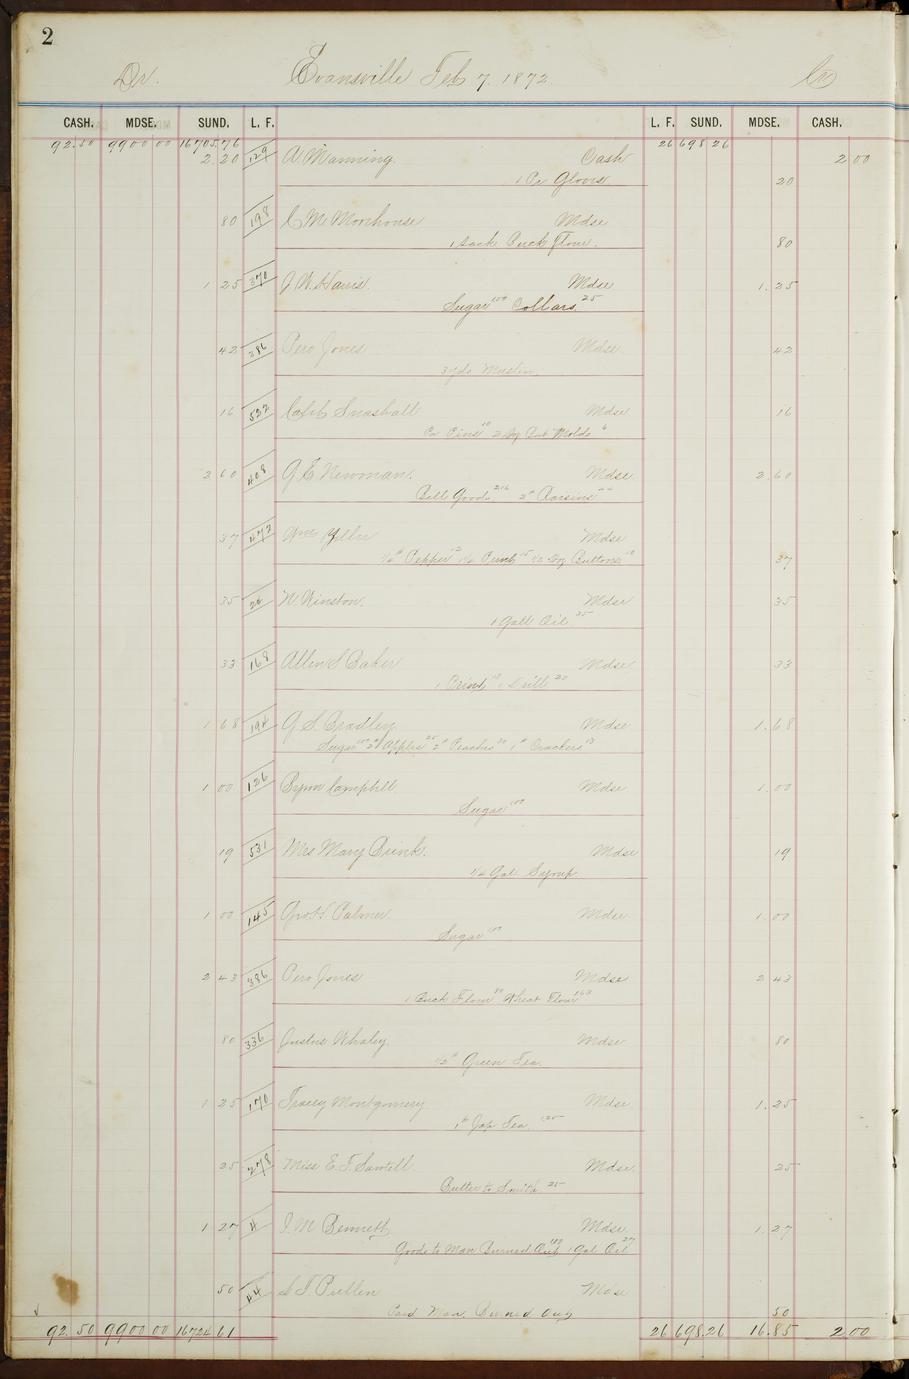 2
Dr. Evansville Feb 7. 1872 Cr
CASH. MDSE. SUND. L. F. L. F. SUND. MDSE. CASH.
92.50 9900 00 16705.76 26 698 26
2.20 129 A Manning. Cash 2 00
1 Pr Gloves 20
80 198 C M Morehouse Mdse
1 Sack Buck Flour. 80
1 25 370 J W. Harris. Mdse 1.25
Sugar 100 Collars 25
42 386 Pero Jones Mdse 42
3 yds Muslin
16 522 Caleb Snashall Mdse 16
Pa Pins 10 2 Dz But Molds 6
2 60 408 G E Newman. Mdse 2.60
Bill Goods 216 2# Raisins
37 472 Wm Mdse
1/4# Pepper 12 1 1/2 Print 15 1/2 Doz Buttons 10 37
35 26 W. Winston. Mdse 35
1 Gall Oil 35
33 168 Allen S Baker Mdse 33
1 Print 13 1 Drill 20
1 68 194 G. S. Bradley Mdse 1.68
Sugar 100 2# Apples 25 2# Peaches 30 1# Crackers 13
1 00 126 Byron Campbell Mdse 1.00
Sugar 100
19 531 Mrs Mary Brink. Mdse 19
1/4 Gall Syrup
1 00 145 Palmer Mdse 1.00
Sugar 100
2 43 386 Pero Jones Mdse 2 43
1 Buck Flour 80 Wheat Flour 163
80 336 Justus Whaley Mdse 80
1/2# Green Tea.
1 25 170 Tracey Montgomery Mdse 1.25
1# Jap Tea 125
25 278 Miss E. T. Sawtell Mdse 25
Butter to Smith 25
1 27 4 J. M Bennett Mdse 1.27
Goods to Man Burned Out 100 1 Gal Oil 27
50 44 S T. Pullen Mdse
Paid Man Burned Out 50
92.50 9900 00 16724 61 26 698.26 16.85 2.00